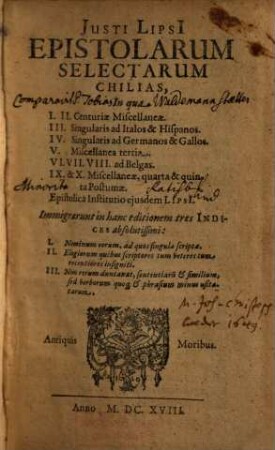 JUSTI LIPSI
EPISTOLARUM
SELECTARUM
CHILIAS,
In qua
I. II. Centuriæ Miscellaneæ.
III. Singularis ad Italos & Hispanos.
IV. Singularis ad Germanos & Gallos.
V. Miscellanea tertia.
VI. VII. VIII. ad Belgas.
IX. & X. Miscellaneæ, quarta & quin-
ta Postumæ.
Epistolica Institutio ejusdem LIPSI.
Immigrarunt in hanc editionem tres INDI-
CES absolutissimi:
I. Nominum eorum, ad quos singulæ scriptæ.
II. Elogiorum quibus scriptores tum veteres tum
recentiores insigniti.
III. Non rerum duntaxat, sententiarũ & similium,
sed verborum quoq; & phrasium minus usita-
tarum.
Antiquis Moribus.
Anno M. DC. XVIII.